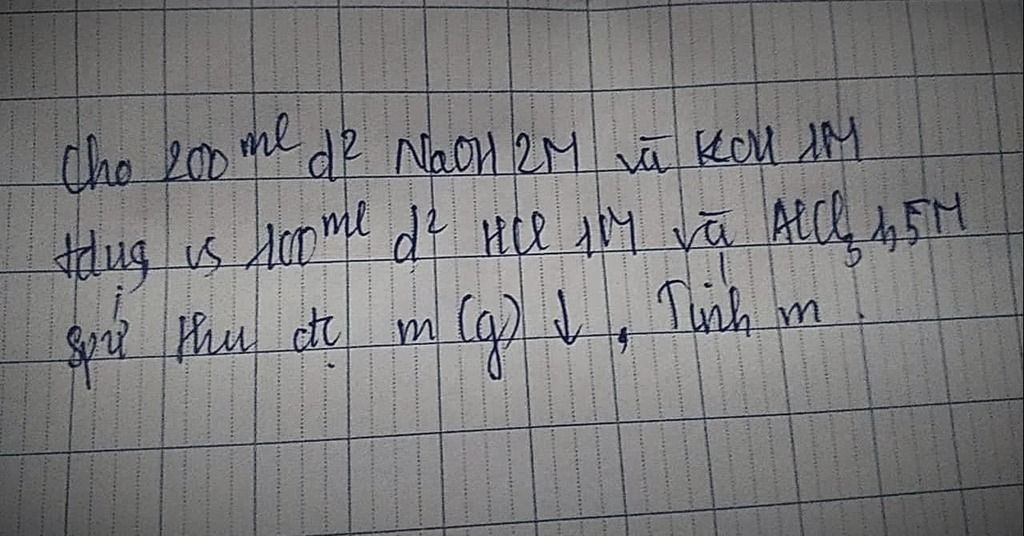 Cho 200 ml d² NaOH 2M và KOH 1M
tdụg vs 100 ml d² HCl 1M và AlCl₃ 1,5M
spứ thu đc m (g) ↓, Tính m.